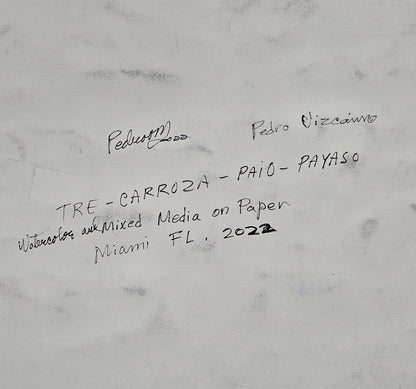 Pedro Vizcaíno
TRE-CARROZA-PAIO-PAYASO
Watercolor and Mixed Media on Paper
Miami FL. 2022